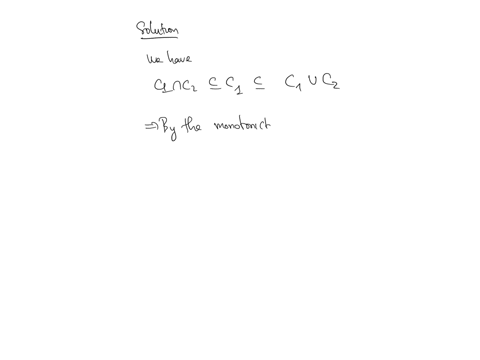 Solution
we have
C1∩C2 ⊆ C1 ⊆ C1 ∪ C2
⇒ By the monotonict